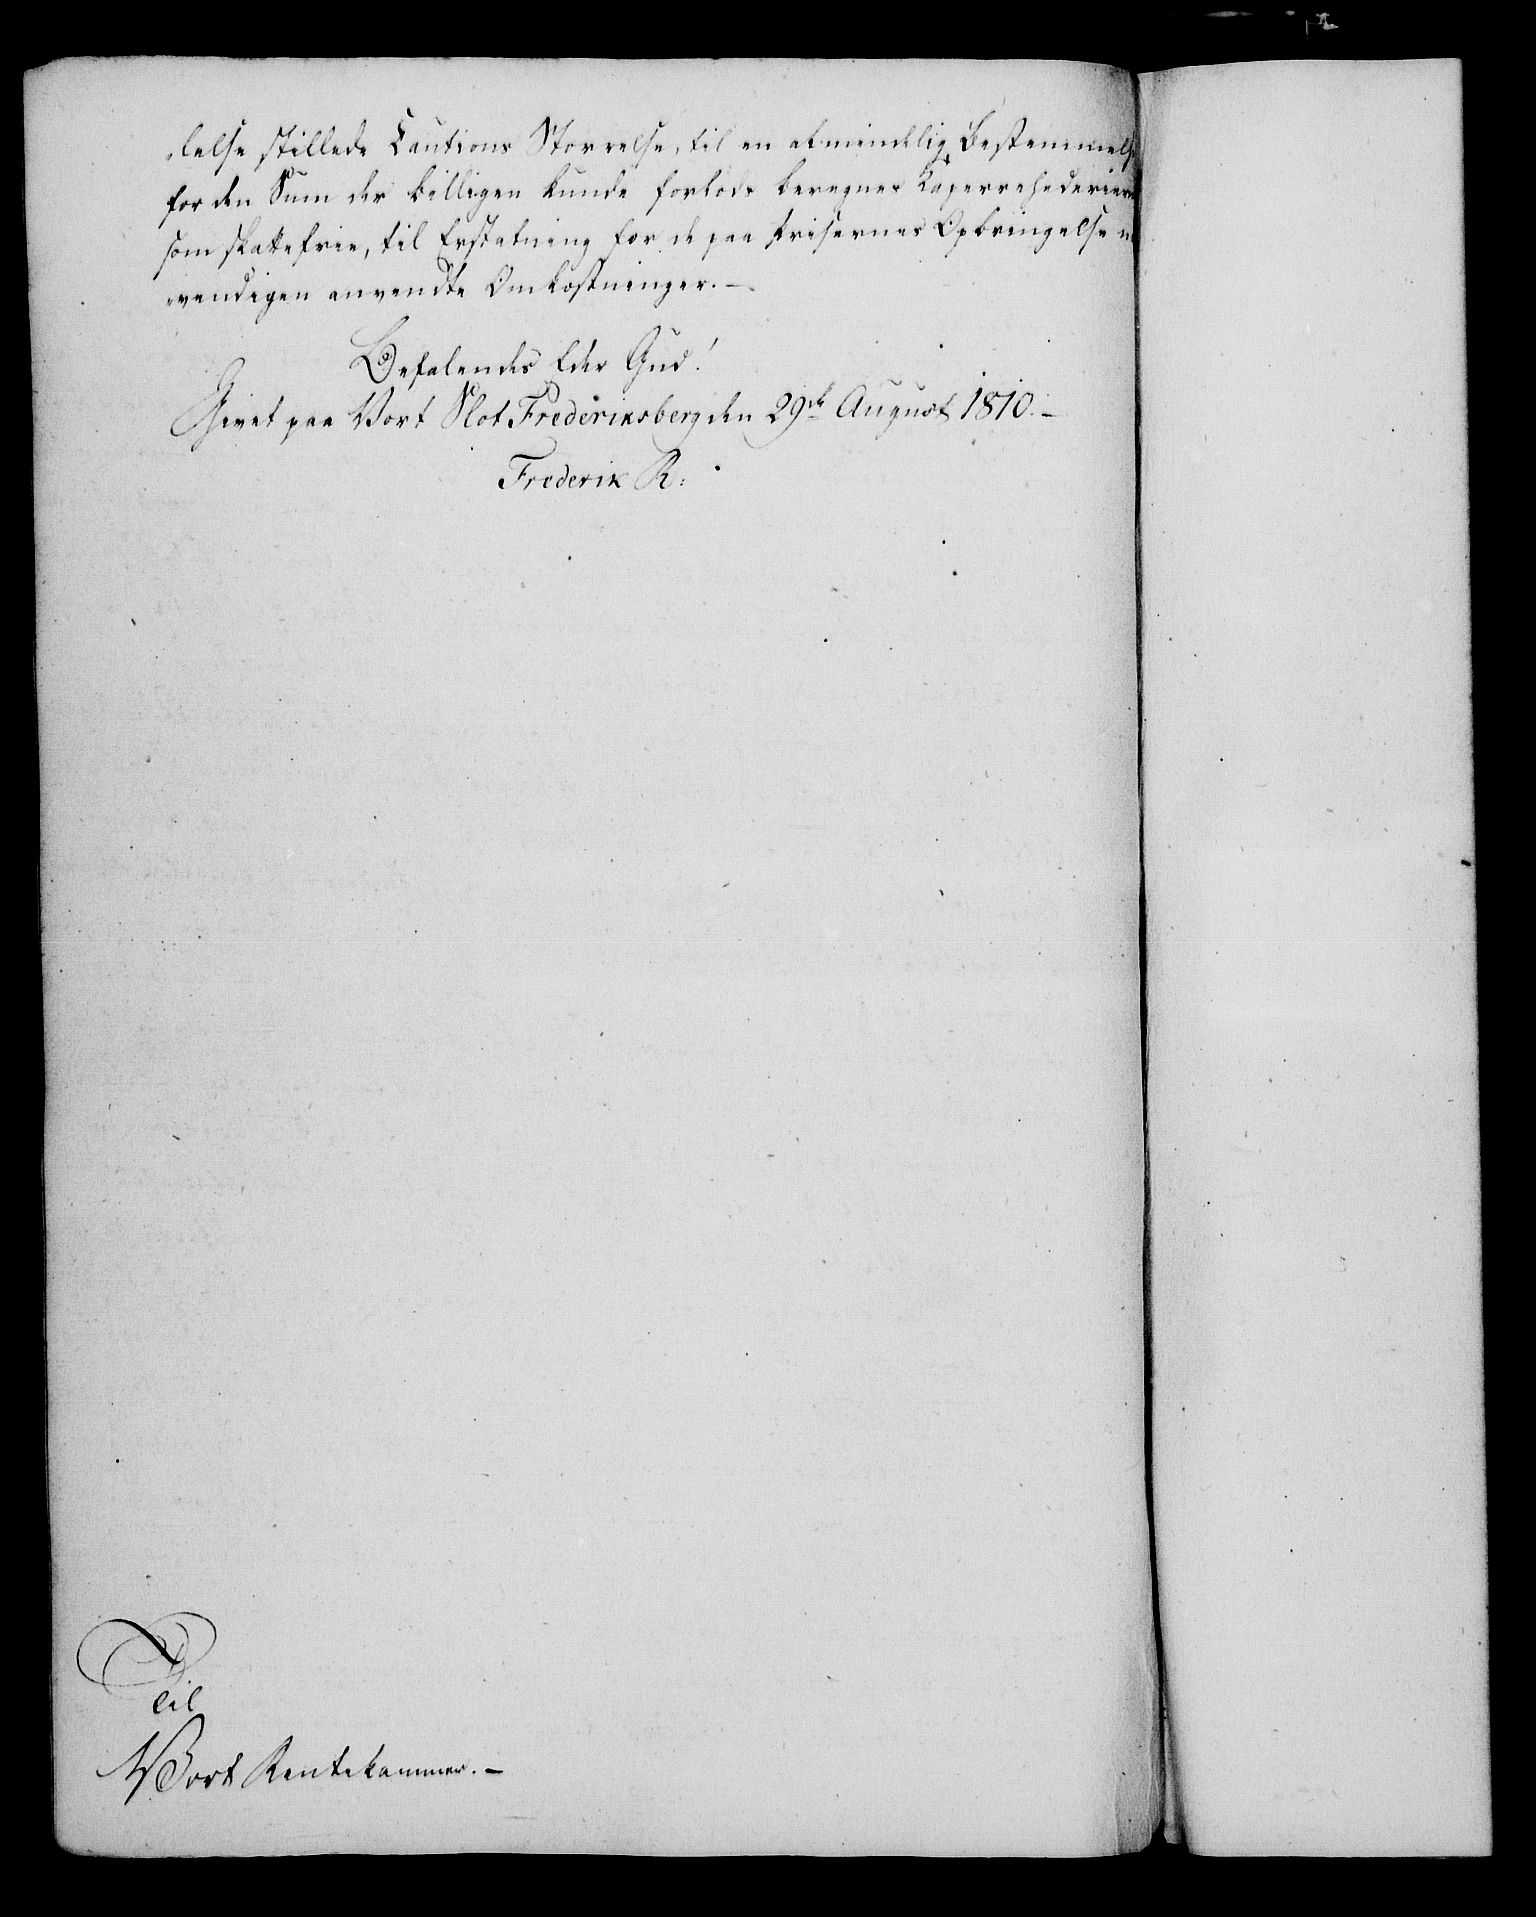 delse stillede Cautions Størrelse, til en almindelig Bestemmelse
for den Sum der billigen kunde forlods beregnes Kaperrhederierne
som skattefrie, til Erstatning for de paa Prisernes Opbringelse
vendigen anvendte Omkostninger. –
Befalendes Eder Gud!
Givet paa Vort Slot Frederiksberg den 29de August 1810. –
Frederik R:
Til
Vort Rentekammer. –